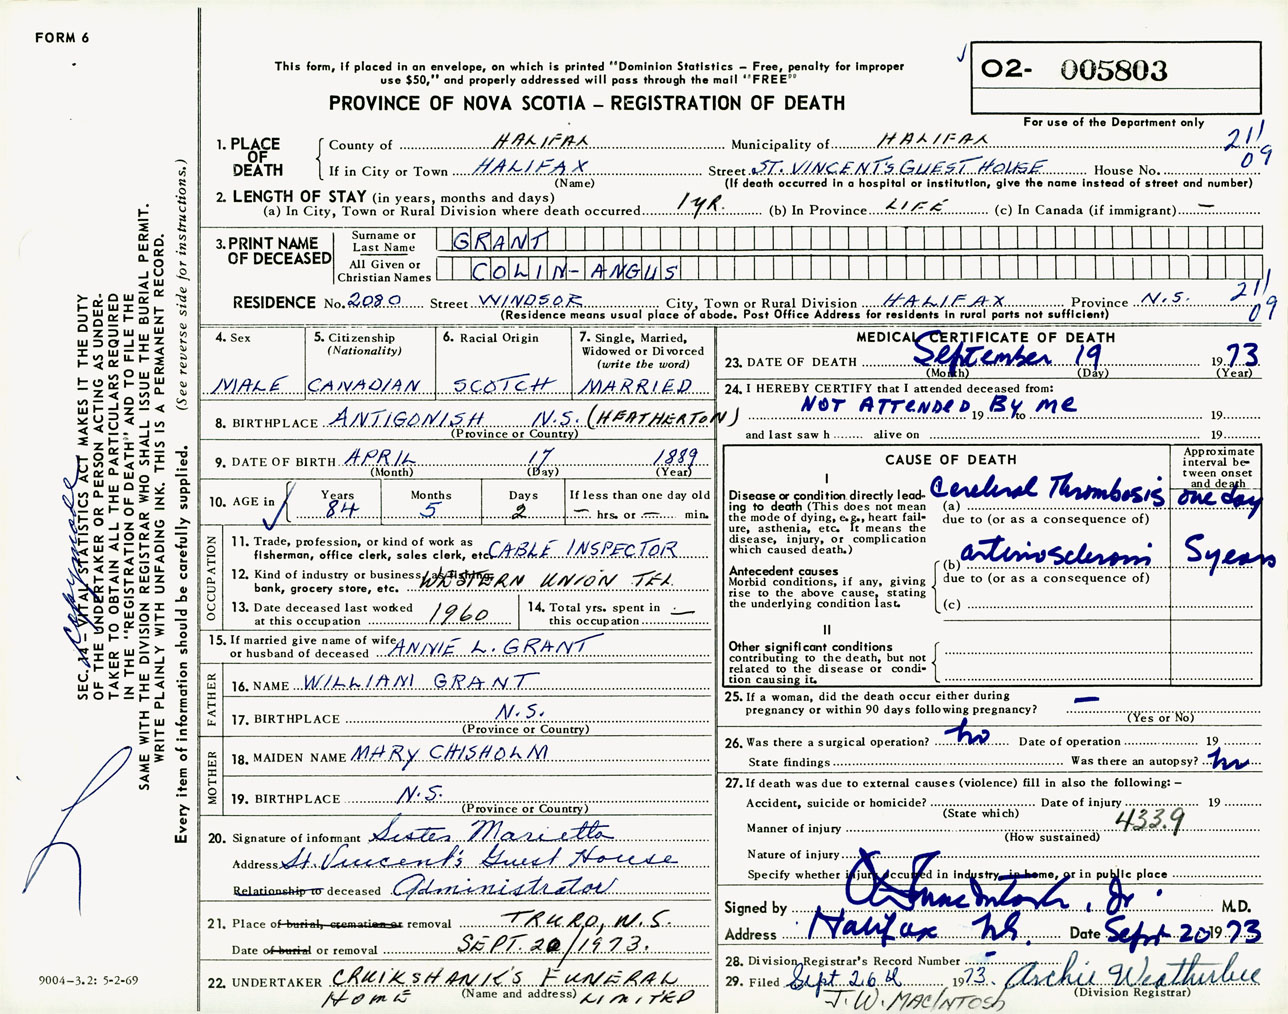 FORM 6
This form, if placed in an envelope, on which is printed "Dominion Statistics – Free, penalty for improper
use $50," and properly addressed will pass through the mail "FREE"
PROVINCE OF NOVA SCOTIA – REGISTRATION OF DEATH
O2- 005803
For use of the Department only
1. PLACE OF DEATH
County of HALIFAX Municipality of HALIFAX 211
If in City or Town HALIFAX Street ST. VINCENT'S GUEST HOUSE House No. 09
(Name) (If death occurred in a hospital or institution, give the name instead of street and number)
2. LENGTH OF STAY (in years, months and days)
(a) In City, Town or Rural Division where death occurred 1 YR. (b) In Province LIFE (c) In Canada (if immigrant) —
3. PRINT NAME OF DECEASED
Surname or Last Name GRANT
All Given or Christian Names COLIN-ANGUS
RESIDENCE No. 2080 Street WINDSOR City, Town or Rural Division HALIFAX Province N.S. 211 09
(Residence means usual place of abode. Post Office Address for residents in rural parts not sufficient)
4. Sex
MALE
5. Citizenship (Nationality)
CANADIAN
6. Racial Origin
SCOTCH
7. Single, Married, Widowed or Divorced (write the word)
MARRIED
8. BIRTHPLACE ANTIGONISH N.S. (HEATHERTON)
(Province or Country)
9. DATE OF BIRTH APRIL 17 1889
(Month) (Day) (Year)
10. AGE in Years 84 Months 5 Days 2 If less than one day old — hrs. or — min.
OCCUPATION
11. Trade, profession, or kind of work as
fisherman, office clerk, sales clerk, etc. CABLE INSPECTOR
12. Kind of industry or business, as fishing,
bank, grocery store, etc. WESTERN UNION TEL
13. Date deceased last worked
at this occupation 1960
14. Total yrs. spent in
this occupation —
15. If married give name of wife
or husband of deceased ANNIE L. GRANT
FATHER
16. NAME WILLIAM GRANT
17. BIRTHPLACE N.S.
(Province or Country)
MOTHER
18. MAIDEN NAME MARY CHISHOLM
19. BIRTHPLACE N.S.
(Province or Country)
20. Signature of informant Sister Marietta
Address St. Vincent's Guest House
Relationship to deceased Administrator
21. Place of burial, cremation or removal TRURO, N.S.
Date of burial or removal SEPT. 20/1973.
22. UNDERTAKER CRUIKSHANK'S FUNERAL
HOME (Name and address) LIMITED
MEDICAL CERTIFICATE OF DEATH
23. DATE OF DEATH September 19 1973
(Month) (Day) (Year)
24. I HEREBY CERTIFY that I attended deceased from:
NOT ATTENDED 19 BY ME to 19
and last saw h alive on 19
CAUSE OF DEATH
Approximate interval between onset and death
I
Disease or condition directly leading to death (This does not mean the mode of dying, e.g., heart failure, asthenia, etc. It means the disease, injury, or complication which caused death.)
(a) Cerebral Thrombosis one day
due to (or as a consequence of)
Antecedent causes
Morbid conditions, if any, giving rise to the above cause, stating the underlying condition last.
(b) arteriosclerosis 5 years
due to (or as a consequence of)
(c)
II
Other significant conditions
contributing to the death, but not related to the disease or condition causing it.
25. If a woman, did the death occur either during
pregnancy or within 90 days following pregnancy? —
(Yes or No)
26. Was there a surgical operation? no Date of operation 19
State findings Was there an autopsy? no
27. If death was due to external causes (violence) fill in also the following: –
Accident, suicide or homicide? Date of injury 19
(State which) 433.9
Manner of injury
(How sustained)
Nature of injury
Specify whether injury occurred in industry, in home, or in public place
Signed by MacIntosh, Jr. M.D.
Address Halifax N.S. Date Sept 20 1973
28. Division Registrar's Record Number
29. Filed Sept 26th 1973. Archie Weatherbee
J. W. MACINTOSH (Division Registrar)
SEC. VITAL STATISTICS ACT MAKES IT THE DUTY
OF THE UNDERTAKER OR PERSON ACTING AS UNDER-
TAKER TO OBTAIN ALL THE PARTICULARS REQUIRED
IN THE "REGISTRATION OF DEATH" AND TO FILE THE
SAME WITH THE DIVISION REGISTRAR WHO SHALL ISSUE THE BURIAL PERMIT.
WRITE PLAINLY WITH UNFADING INK. THIS IS A PERMANENT RECORD.
Every item of information should be carefully supplied. (See reverse side for instructions.)
9004–3.2: 5-2-69